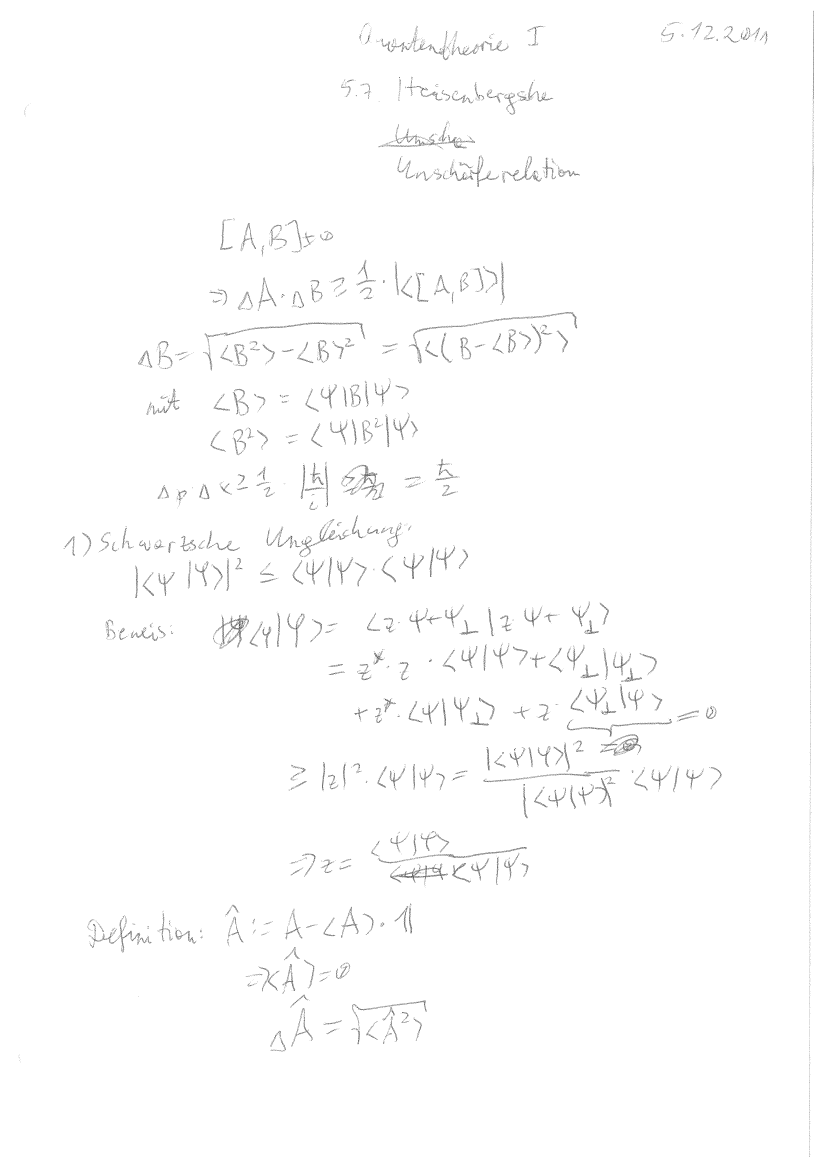 Quantentheorie I 5.12.2011
5.7. Heisenbergshe
Unschärferelation
[A,B]≠0
⇒ ΔA·ΔB ≥ 1/2 · |<[A,B]>|
ΔB = √(<B²> - <B>²) = √(<(B-<B>)²>)
mit <B> = <Ψ|B|Ψ>
<B²> = <Ψ|B²|Ψ>
Δp·Δx ≥ 1/2 · |ħ/i| = ħ/2
1) Schwartzsche Ungleichung:
|<Ψ|φ>|² ≤ <Ψ|Ψ>·<φ|φ>
Beweis: <φ|φ> = <z·Ψ+Ψ⊥|z·Ψ+Ψ⊥>
= z*·z·<Ψ|Ψ>+<Ψ⊥|Ψ⊥>
+z*·<Ψ|Ψ⊥> + z·<Ψ⊥|Ψ> = 0
≥ |z|²·<Ψ|Ψ> = |<Ψ|φ>|² / |<Ψ|Ψ>|² · <Ψ|Ψ>
⇒ z = <Ψ|φ> / <Ψ|Ψ>
Definition: Â := A-<A>·𝟙
⇒ <Â> = 0
ΔÂ = √(<²>)